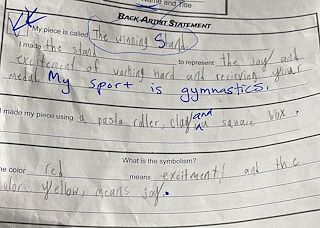 Name and Title
BACK ARTIST STATEMENT
My piece is called The winning Stand.
I made the stand to represent the joy and
excitement of working hard and recieving your
medal. My sport is gymnastics.
I made my piece using a pasta roller, clay and a square box,
What is the symbolism?
he color red means excitment! and the
color, yellow, means joy.